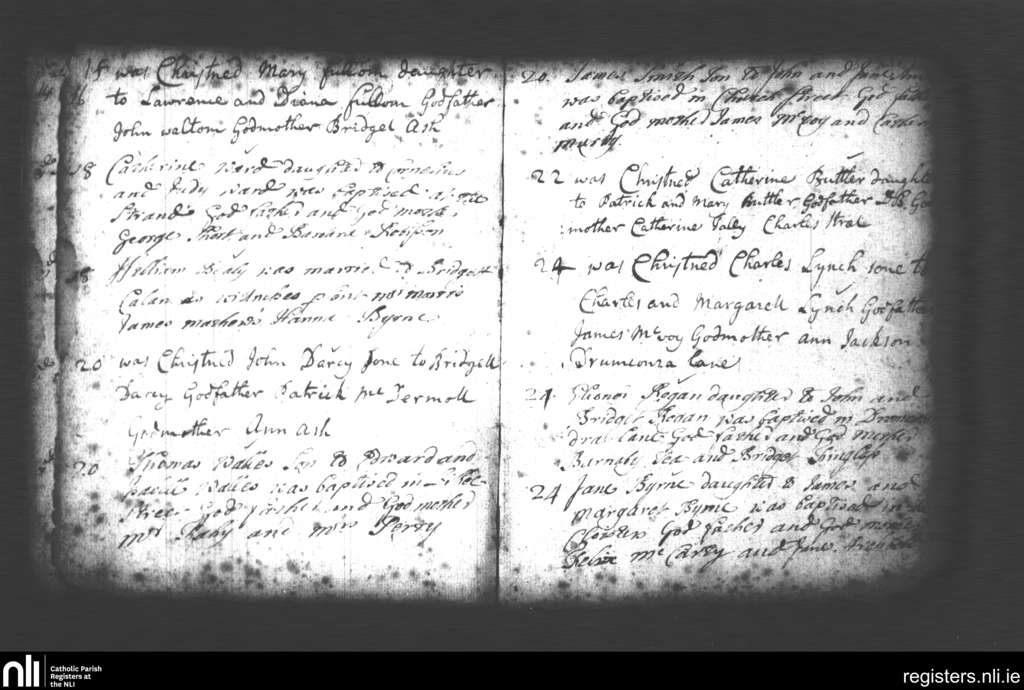 15 was Christned Mary fullom daughter
16 to Lawrence and Diana fullom Godfather
John waltom Godmother Bridget Ash
18 Catherine Ward daughter to Cornelius
and Judy ward was baptised at the
Strand God father and God mother
George Short and Robison
18 William Bealy was married to Bridget
Calan as witnesses
James Hanna Byrne
20 was Christned John Darcy sone to Bridgett
Darcy Godfather Patrick Mc Dermott
Godmother Ann Ash
20 Thomas Wales Son to Edward and
Wales was baptised in
street God father and God mother
Mr and Mrs Perry
20. James Smith Son to John and Jane
was baptised in Church Street God
and God mother James McVoy and
Murty.
22 was Christned Catherine Buttler daughter
to Patrick and Mary Buttler Godfather God
:mother Catherine Tally Charles Stret
24 was Christned Charles Lynch sone to
Charles and Margarett Lynch Godfather
James McVoy Godmother ann Jackson
Drumconra Lane
24. Elionor Regan daughter to John and
Bridget Regan was baptised in
lane God father and God mother
Barnaby and Bridget
24 Jane Byrne daughter to James and
Margaret Byrne was baptised in
God father and God mother
Mc Carty and Jane
nli
Catholic Parish
Registers at
the NLI
registers.nli.ie